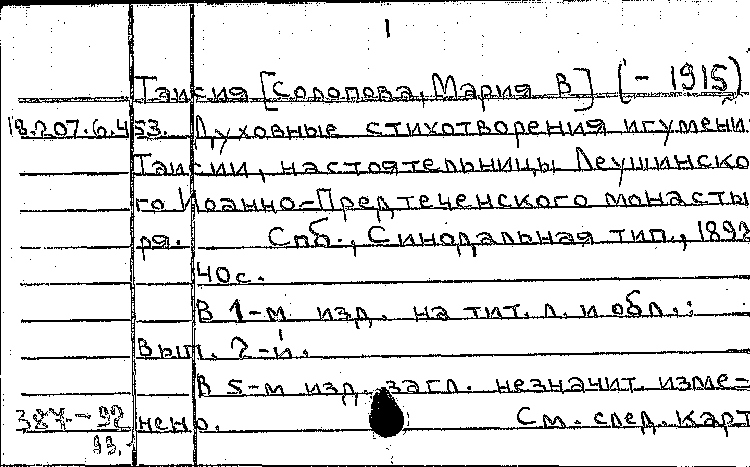 1
Таисия [Солопова, Мария В] (- 1915)
18.207.6.453. Духовные стихотворения игумени
Таисии, настоятельницы Леушинско
го Иоанно-Предтеченского монасты
ря. Спб., Синодальная тип., 1892
40с.
В 1-м изд. на тит. л. и обл.:
Вып. 2-й.
В 5-м изд. загл. незначит. изме=
387-92 нено. См. след. карт
93.